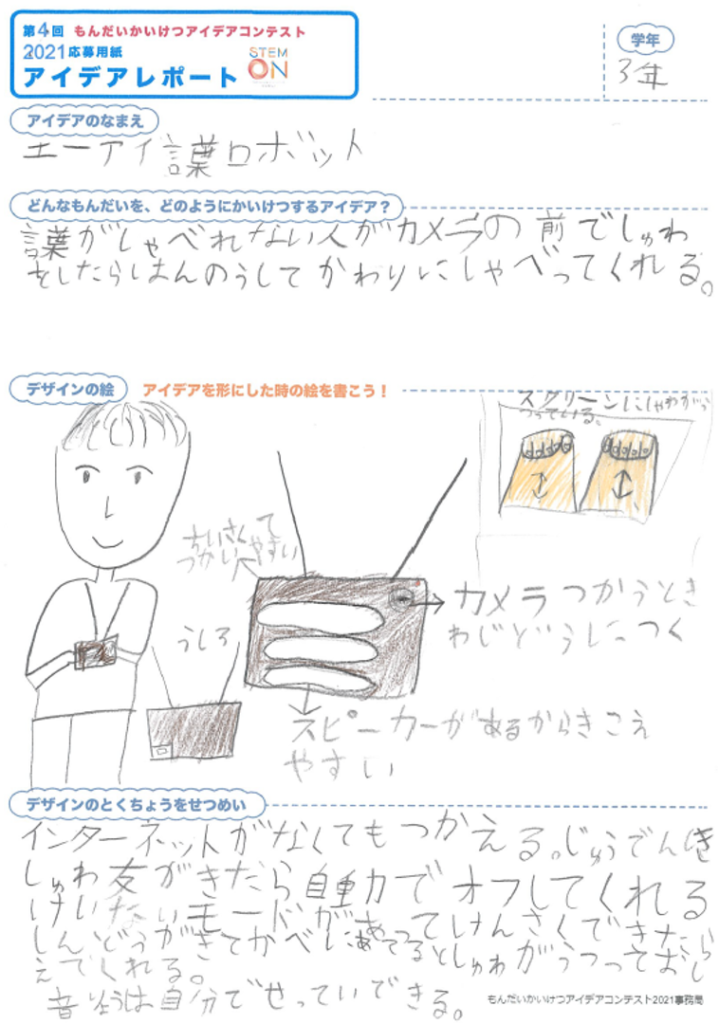 第4回 もんだいかいけつアイデアコンテスト
2021応募用紙
アイデアレポート
STEM
ON
学年
3年
アイデアのなまえ
エーアイ言葉ロボット
どんなもんだいを、どのようにかいけつするアイデア？
言葉がしゃべれない人がカメラの前でしゅわ
をしたらはんのうしてかわりにしゃべってくれる。
デザインの絵
アイデアを形にした時の絵を書こう！
スクリーンにしゅわがう
つっている。
ちいさくて
つかいやすい
カメラつかうとき
わじどうにつく
うしろ
スピーカーがあるからきこえ
やすい
デザインのとくちょうをせつめい
インターネットがなくてもつかえる。じゅうでんき
しゅわ友がきたら自動力でオフしてくれる
けいたいモードがあってけんさくできたら
しんどうがきてかべにあてるとしゅわがうつっておし
えてくれる。
音りょうは自分でせっていできる。
もんだいかいけつアイデアコンテスト2021事務局